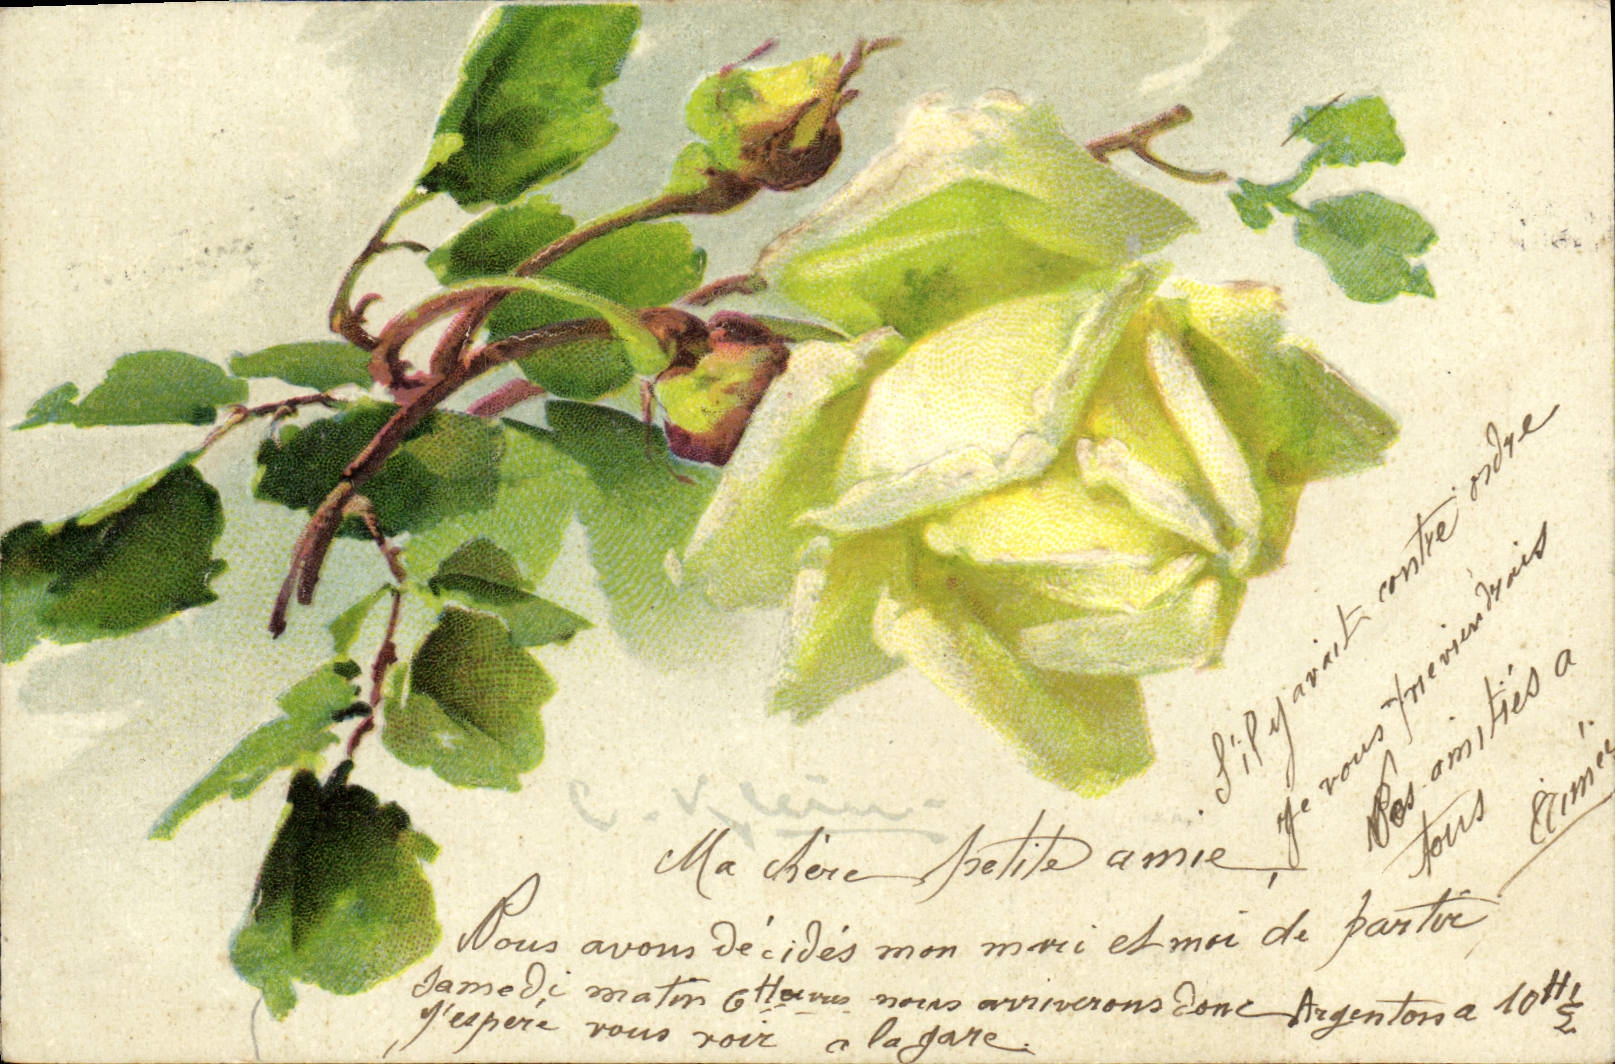 C. Klein
Ma chère petite amie,
Nous avous décidés mon mari et moi de partir
Samedi matin 6 Heures nous arriverons donc Argenton a 10 H 1/2
J'espère vous voir a la gare.
S'il y avait contre ordre
je vous previendrais
Nos amitiés a
tous
Aimée